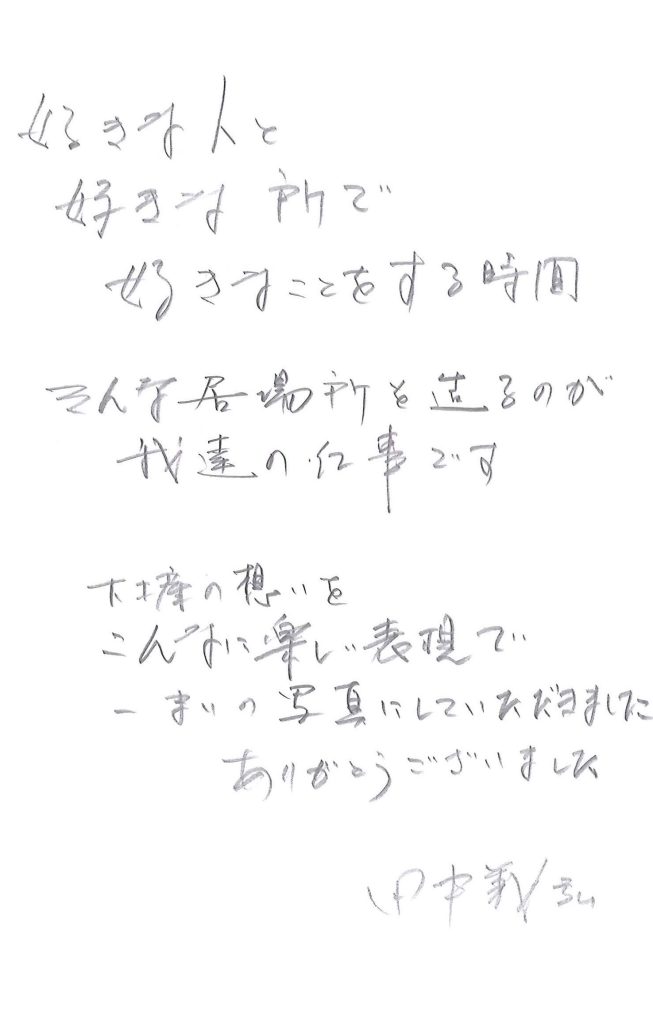 好きな人と
好きな所で
好きなことをする時間
そんな居場所を造るのが
我達の仕事です
の想いを
こんなに楽しい表現で
一まいの写真にしていただきました
ありがとうございました
田中義弘